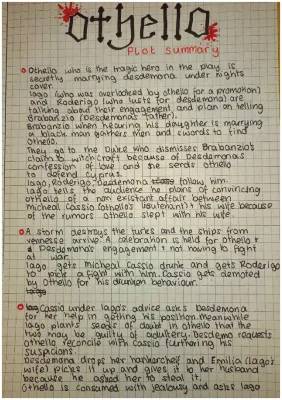 othello
Plot summary
Othello who is the tragic hero in the play is
secretly marrying desdemona under nights
cover.
Iago (who was overlooked by othello for a promotion)
and Roderigo (who lusts for desdemona) are
talking about their engagement and plan on telling
Brabanzio (Desdemona's father).
Brabanzio when hearing his daughter is marrying
a black man gathers men and swords to find
Othello.
They go to the Duke who dismisses Brabanzio's
claim to witchcraft because of Desdemona's
confession of love and he sends othello
to defend Cyprus.
Iago, Roderigo, Desdemona follow him.
Iago tells the audience he plans of convincing
othello of a non existant affair between
micheal Cassio (othello's lieutenant) + his wife because
of the rumors othello slept with his wife.
A storm destroys the turks and the ships from
vennesse arrive. A celebration is held for Othello +
Desdemona's engagement + not having to fight
at war.
Iago gets micheal Cassio drunk and gets Roderigo
to pick a fight with him. Cassio gets demoted
by Othello for his drunken behaviour.
Cassio under Iago's advice asks desdemona
for her help in getting his position. meanwhile
Iago plants seeds of doubt in othello that the
two may be guilty of adultery. Desdemona requests
othello reconcile with cassio furthering his
suspicions.
Desdemona drops her hankerchief and Emilia (Iago's
wife) picks it up and gives it to her husband
because he asked her to steal it.
Othello is consumed with jealousy and asks Iago